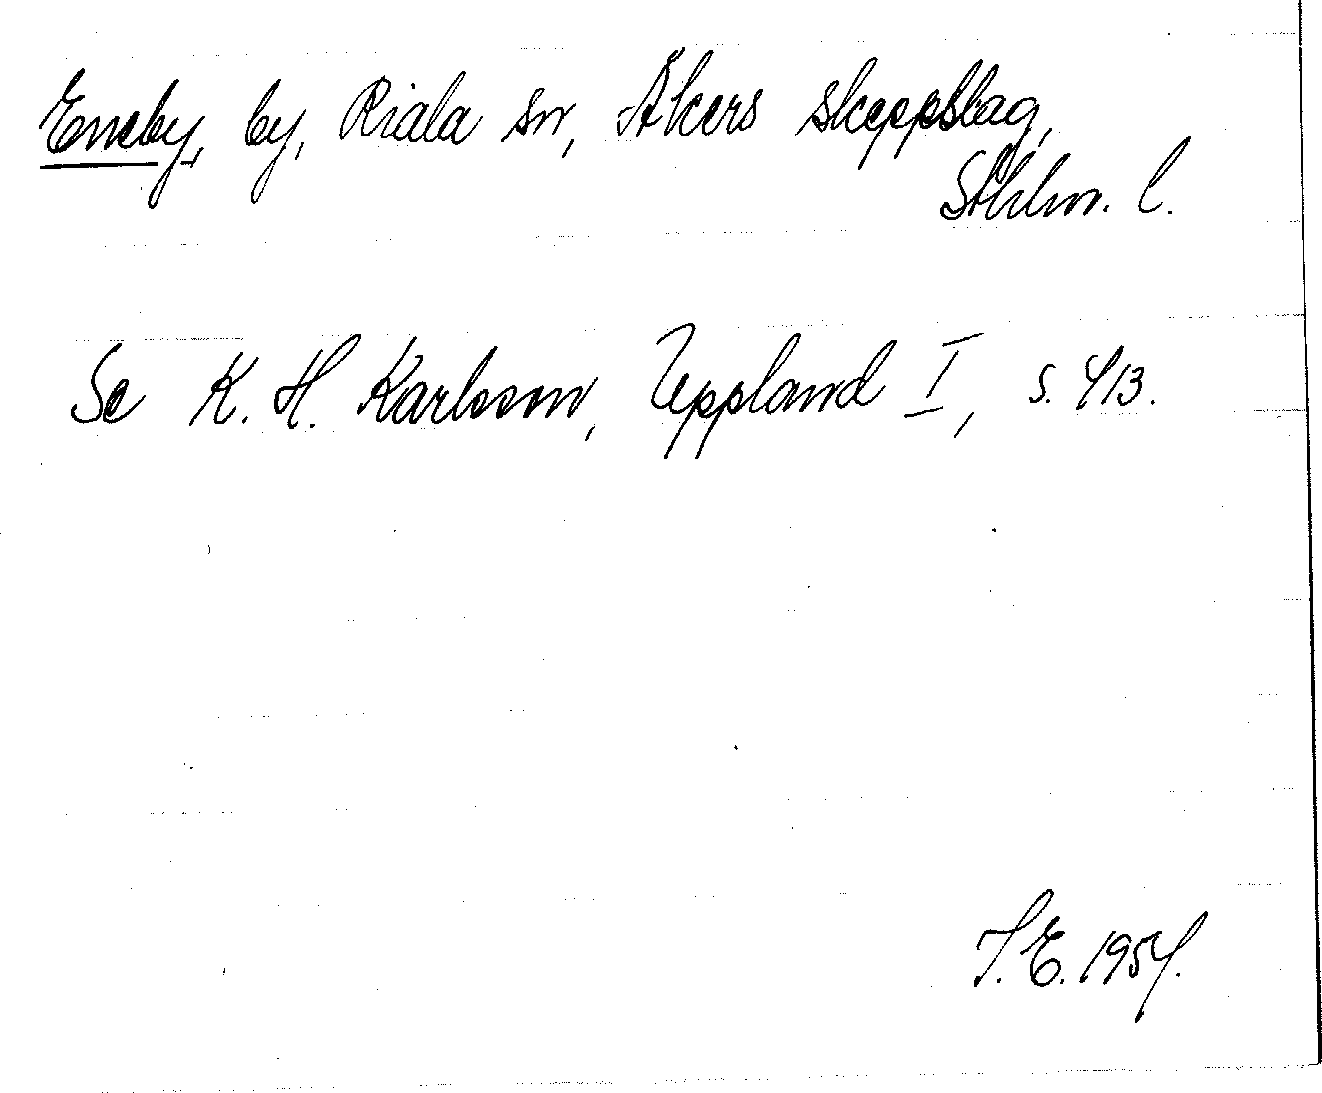 Eneby, by, Riala sn, Åkers skeppslag,
Sthlm. l.
Se K. H. Karlsson, Uppland I, s. 413.
T.E. 1954.